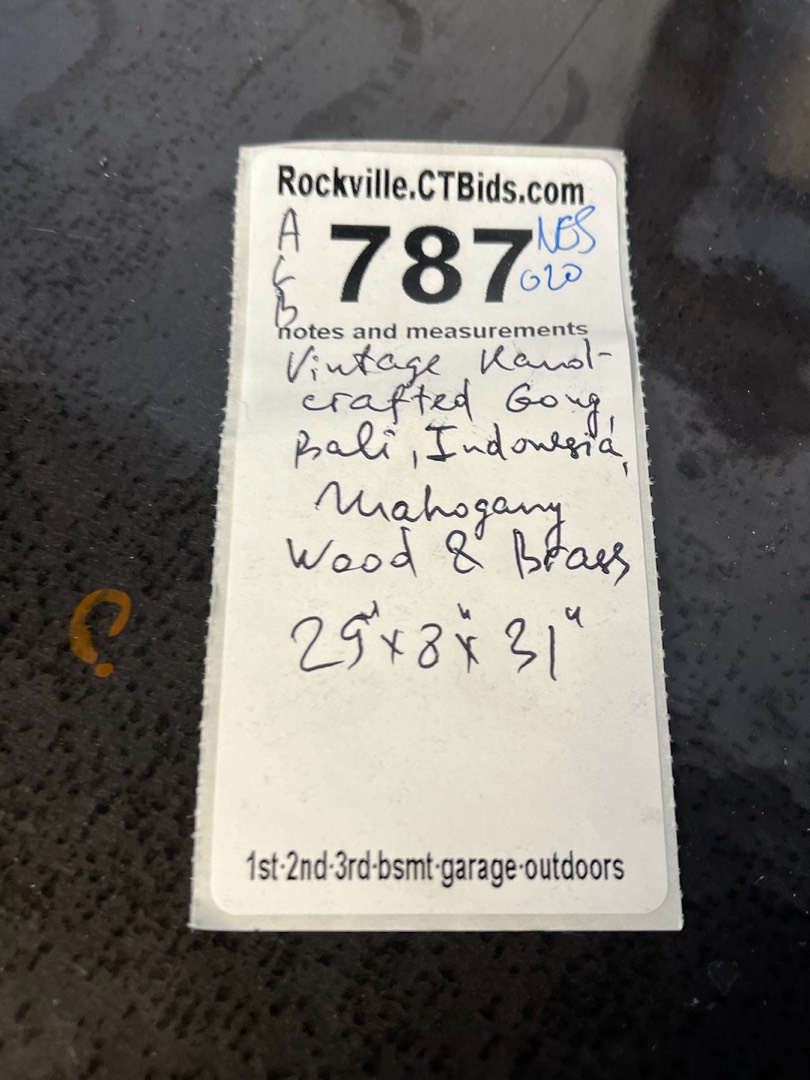 Rockville.CTBids.com
A
C
B
787
NES
020
notes and measurements
Vintage Hand-
crafted Gong,
Bali, Indonesia,
Mahogany
Wood & Brass
29" x 8" x 31"
1st·2nd·3rd·bsmt·garage·outdoors